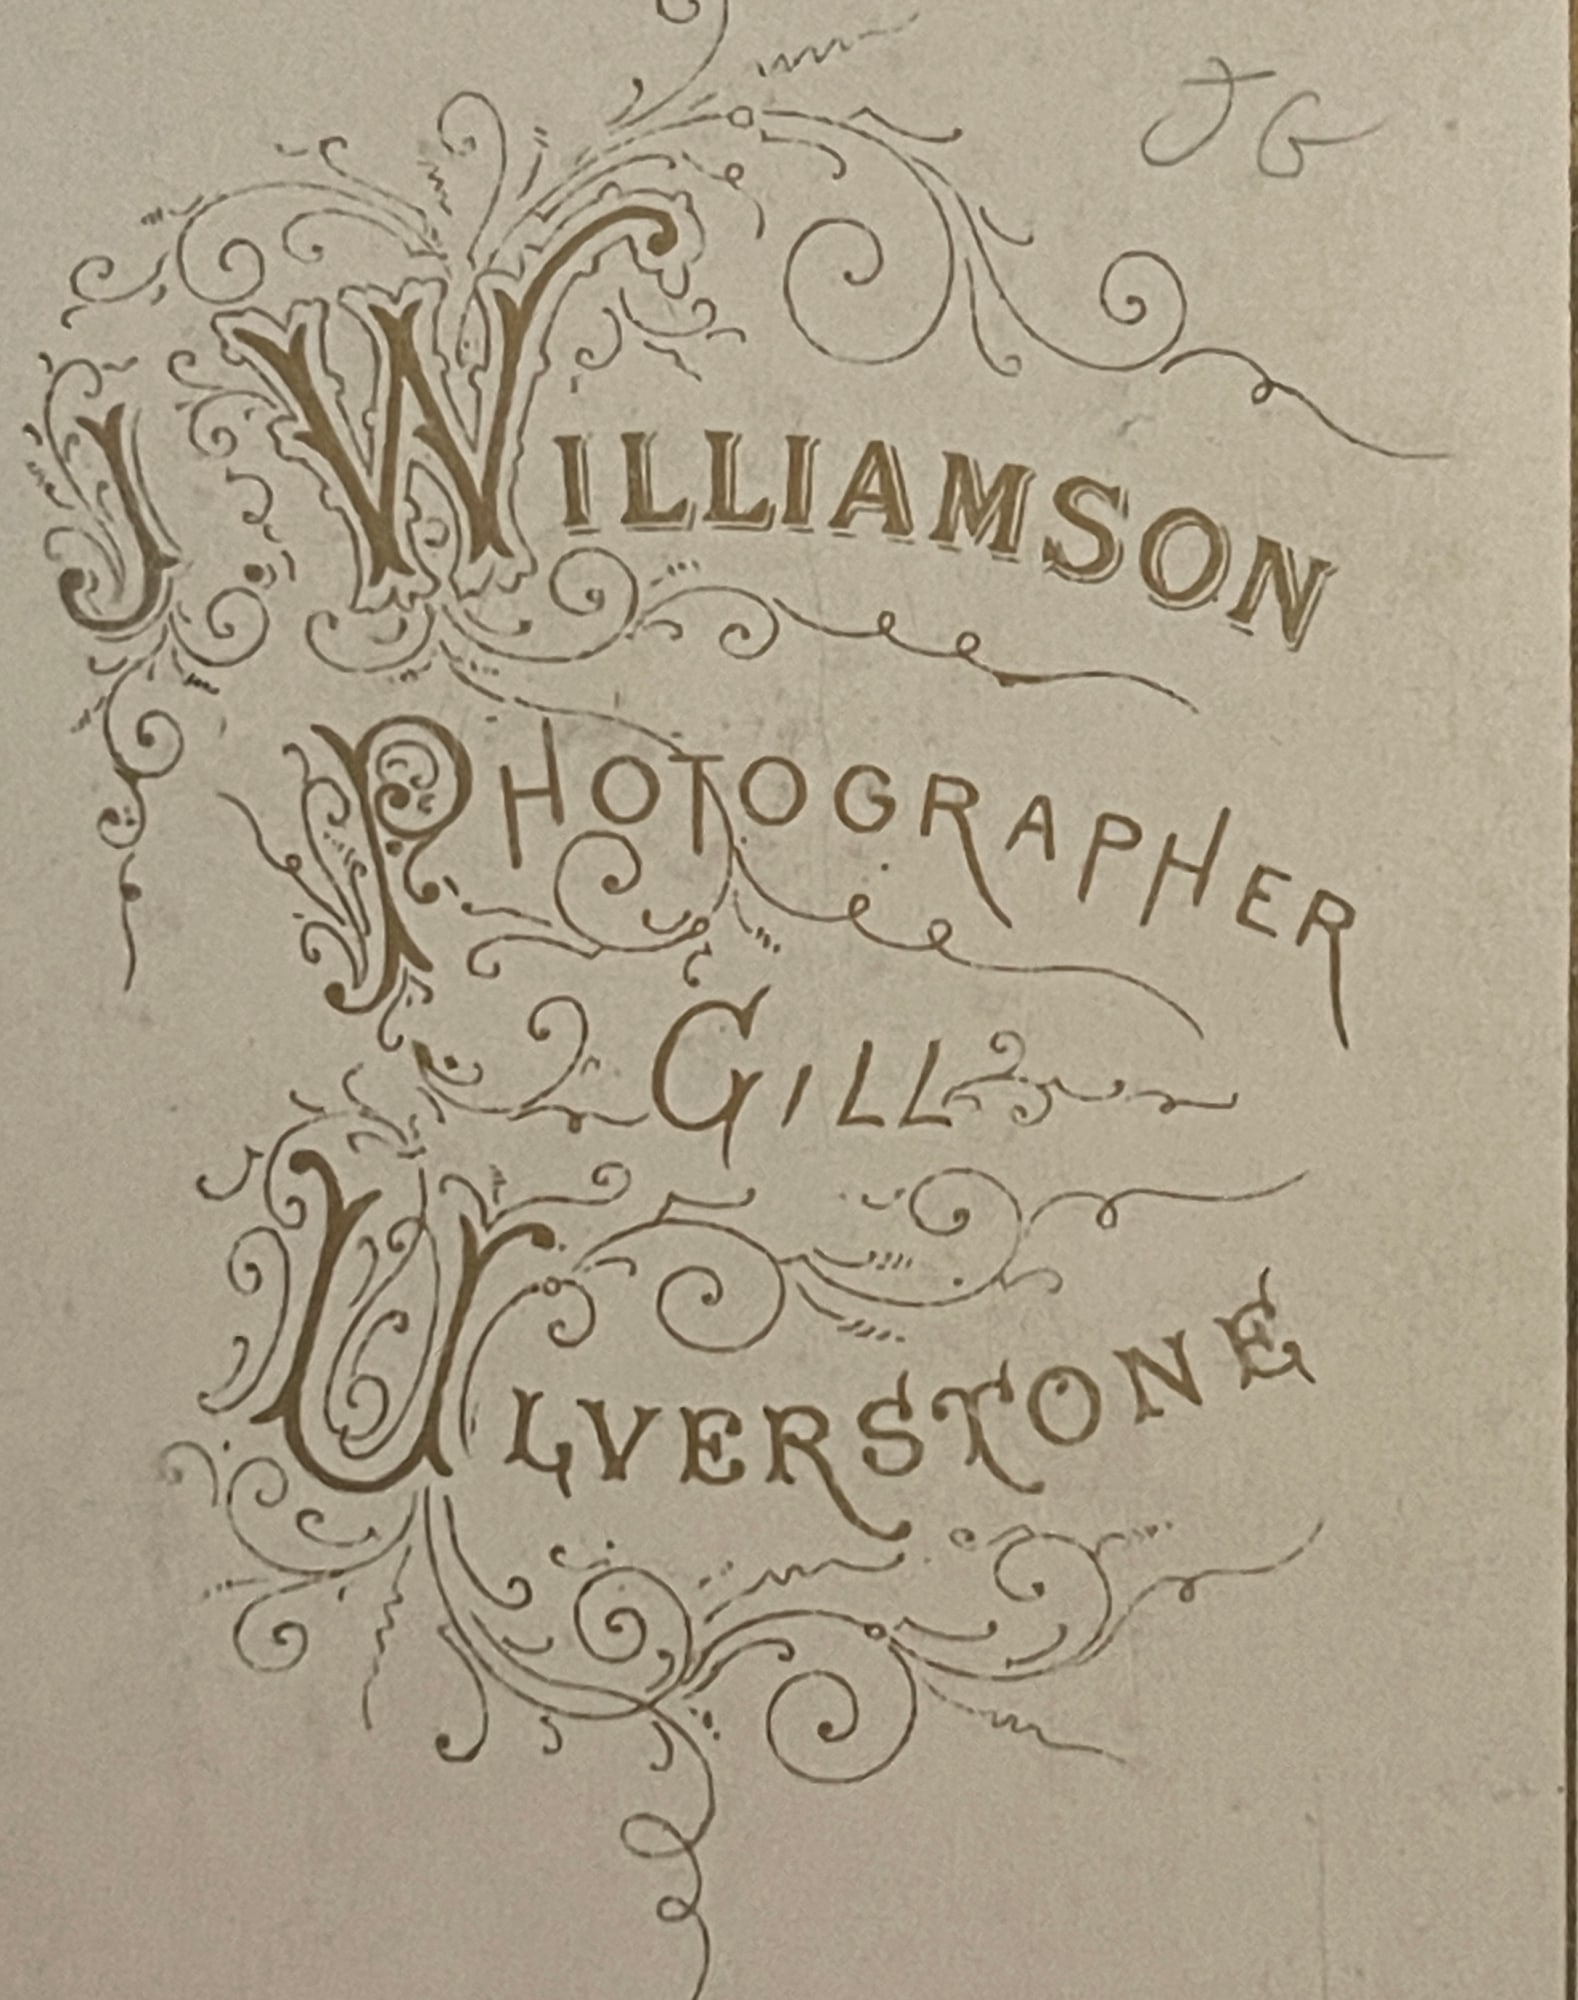 JG
J WILLIAMSON
PHOTOGRAPHER
GILL
ULVERSTONE